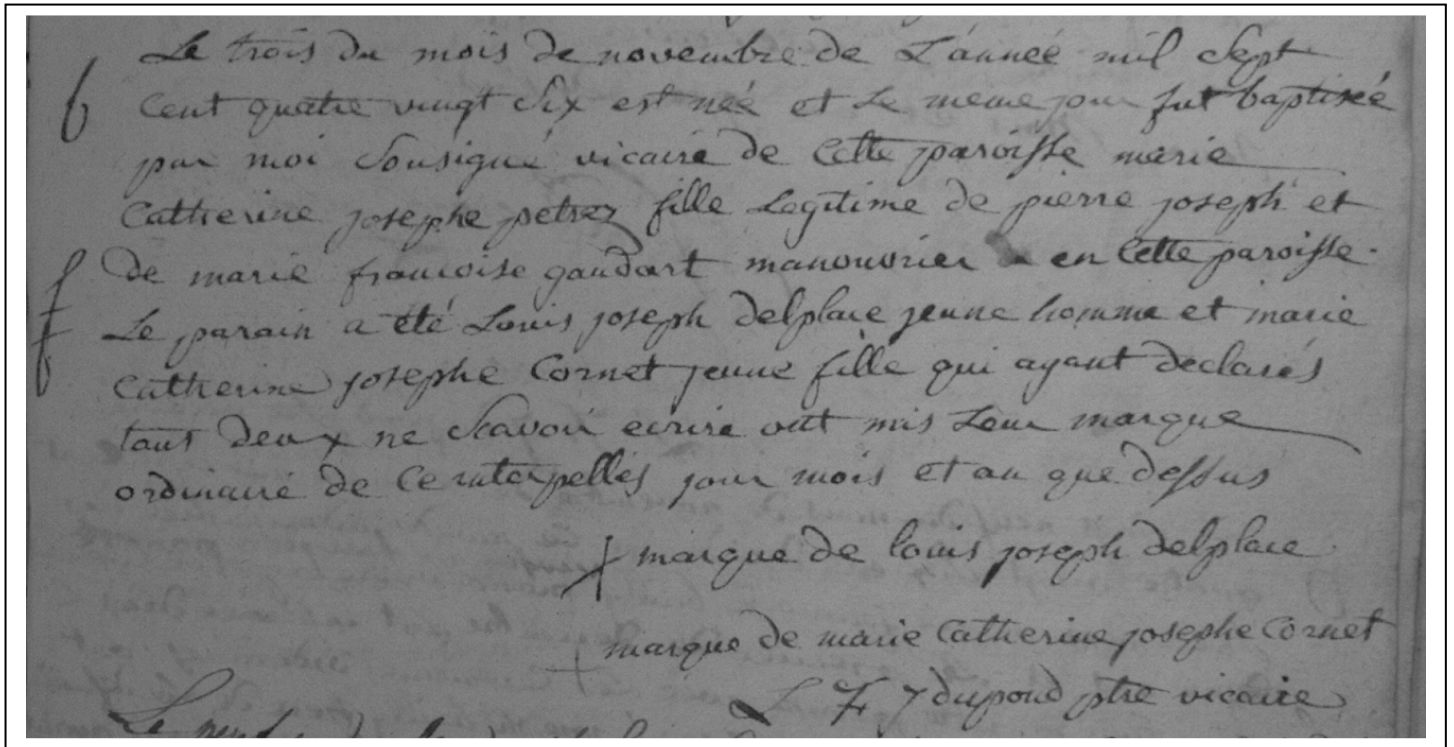 Le trois du mois de novembre de L'année mil Sept
6 Cent quatre vingt Six est née et Le meme jour fut baptiseé
par moi Sousigné vicaire de Cette paroisse marie
Catherine josephe petrez fille Legitime de pierre joseph et
f de marie francoise gaudart manouvrier en Cette paroisse.
Le parain a été Louis joseph delplace jeune homme et marie
Catherine josephe Cornet jeune fille qui ayant declarés
tous deux ne Scavoir ecrire ont mis Leur marque
ordinaire de Ce interpellés jour mois et an que dessus
marque de louis joseph delplace
marque de marie Catherine josephe Cornet
L F J dupond ptre vicaire
Le neuf